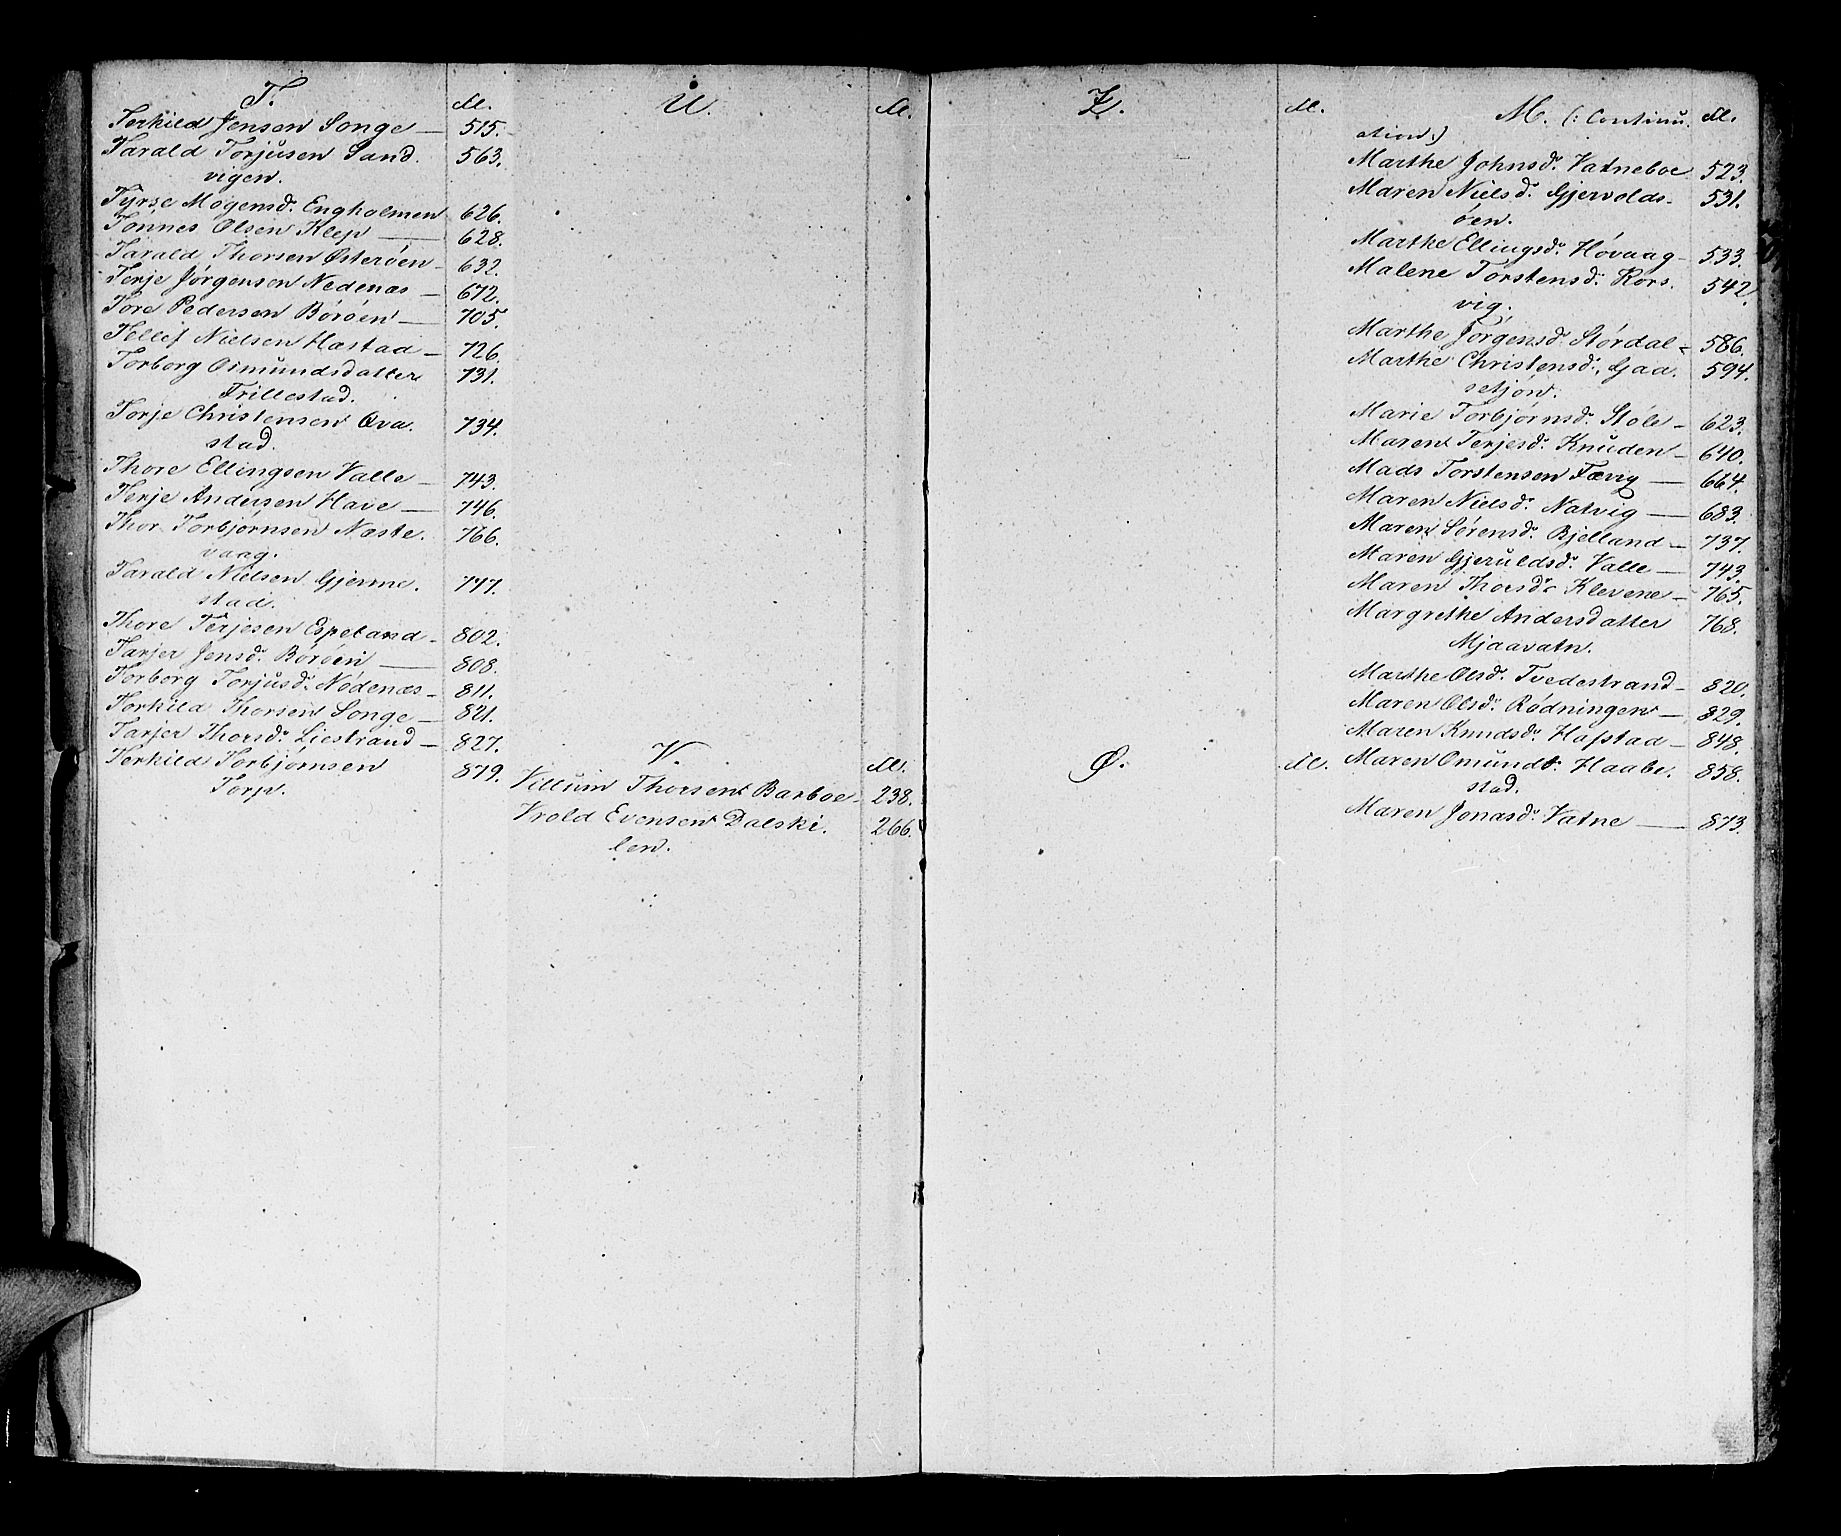 T. M.
Terkild Jensen Songe — 515.
Tarald Torjusen Sand. 563.
vigen.
Tyrse Mogensd. Engholmen 626.
Tønnes Olsen Klep — 628.
Tarald Thorsen Østerøen – 632.
Terje Jørgensen Nedenæs – 672.
Tore Pedersen Børøen — 705.
Tellef Nielsen Hastad – 726.
Torborg Osmundsdatter 731.
Trillestad.
Torje Christensen Ova. 734.
stad.
Thore Ellingsen Valle – 743.
Terje Andersen Have — 746.
Thor Torbjørnsen Næste. 766.
vaag.
Tarald Nielsen Gjerme. 777.
stad.
Thore Terjesen Espeland – 802.
Tarjer Jensd. Børøen — 808.
Torborg Torjusd. Nødenæs – 811.
Torkild Thorsen Songe – 821.
Tarjer Thorsd. Liestrand – 827.
Terkild Torbjørnsen 879.
Torp.
U. M.
V. M.
Villum Thorsen Barboe. 238.
Vrold Evensen Dalski. 266.
len.
Z. M.
Ø. M.
M. (: Continu. M.
ation.)
Marthe Johnsd. Vatneboe 523.
Maren Nielsd. Gjervolds- 531.
øen.
Marthe Ellingsd. Høvaag – 533.
Malene Torstensd. Kors. 542
vig.
Marthe Jørgensd. Stórdal – 586.
Marthe Christensd. Gaa. 594.
setjøn.
Marie Torbjørnsd. Støle – 623.
Maren Terjesd. Knuden – 640.
Mads Torstensen Færig — 664.
Maren Nielsd. Natvig — 683.
Maren Sørensd. Bjelland – 737.
Maren Gjeruldsd. Valle — 743.
Maren Thorsd. Klevene – 765.
Margrethe Andersdatter 768.
Mjaavatn.
Marthe Olsd. Tvedestrand – 820.
Maren Olsd. Rødningen — 829.
Maren Knudsd. Hafstad – 848.
Maren Omundt. Haabe. 858.
stad.
Maren Jonasd. Vatne — 873.